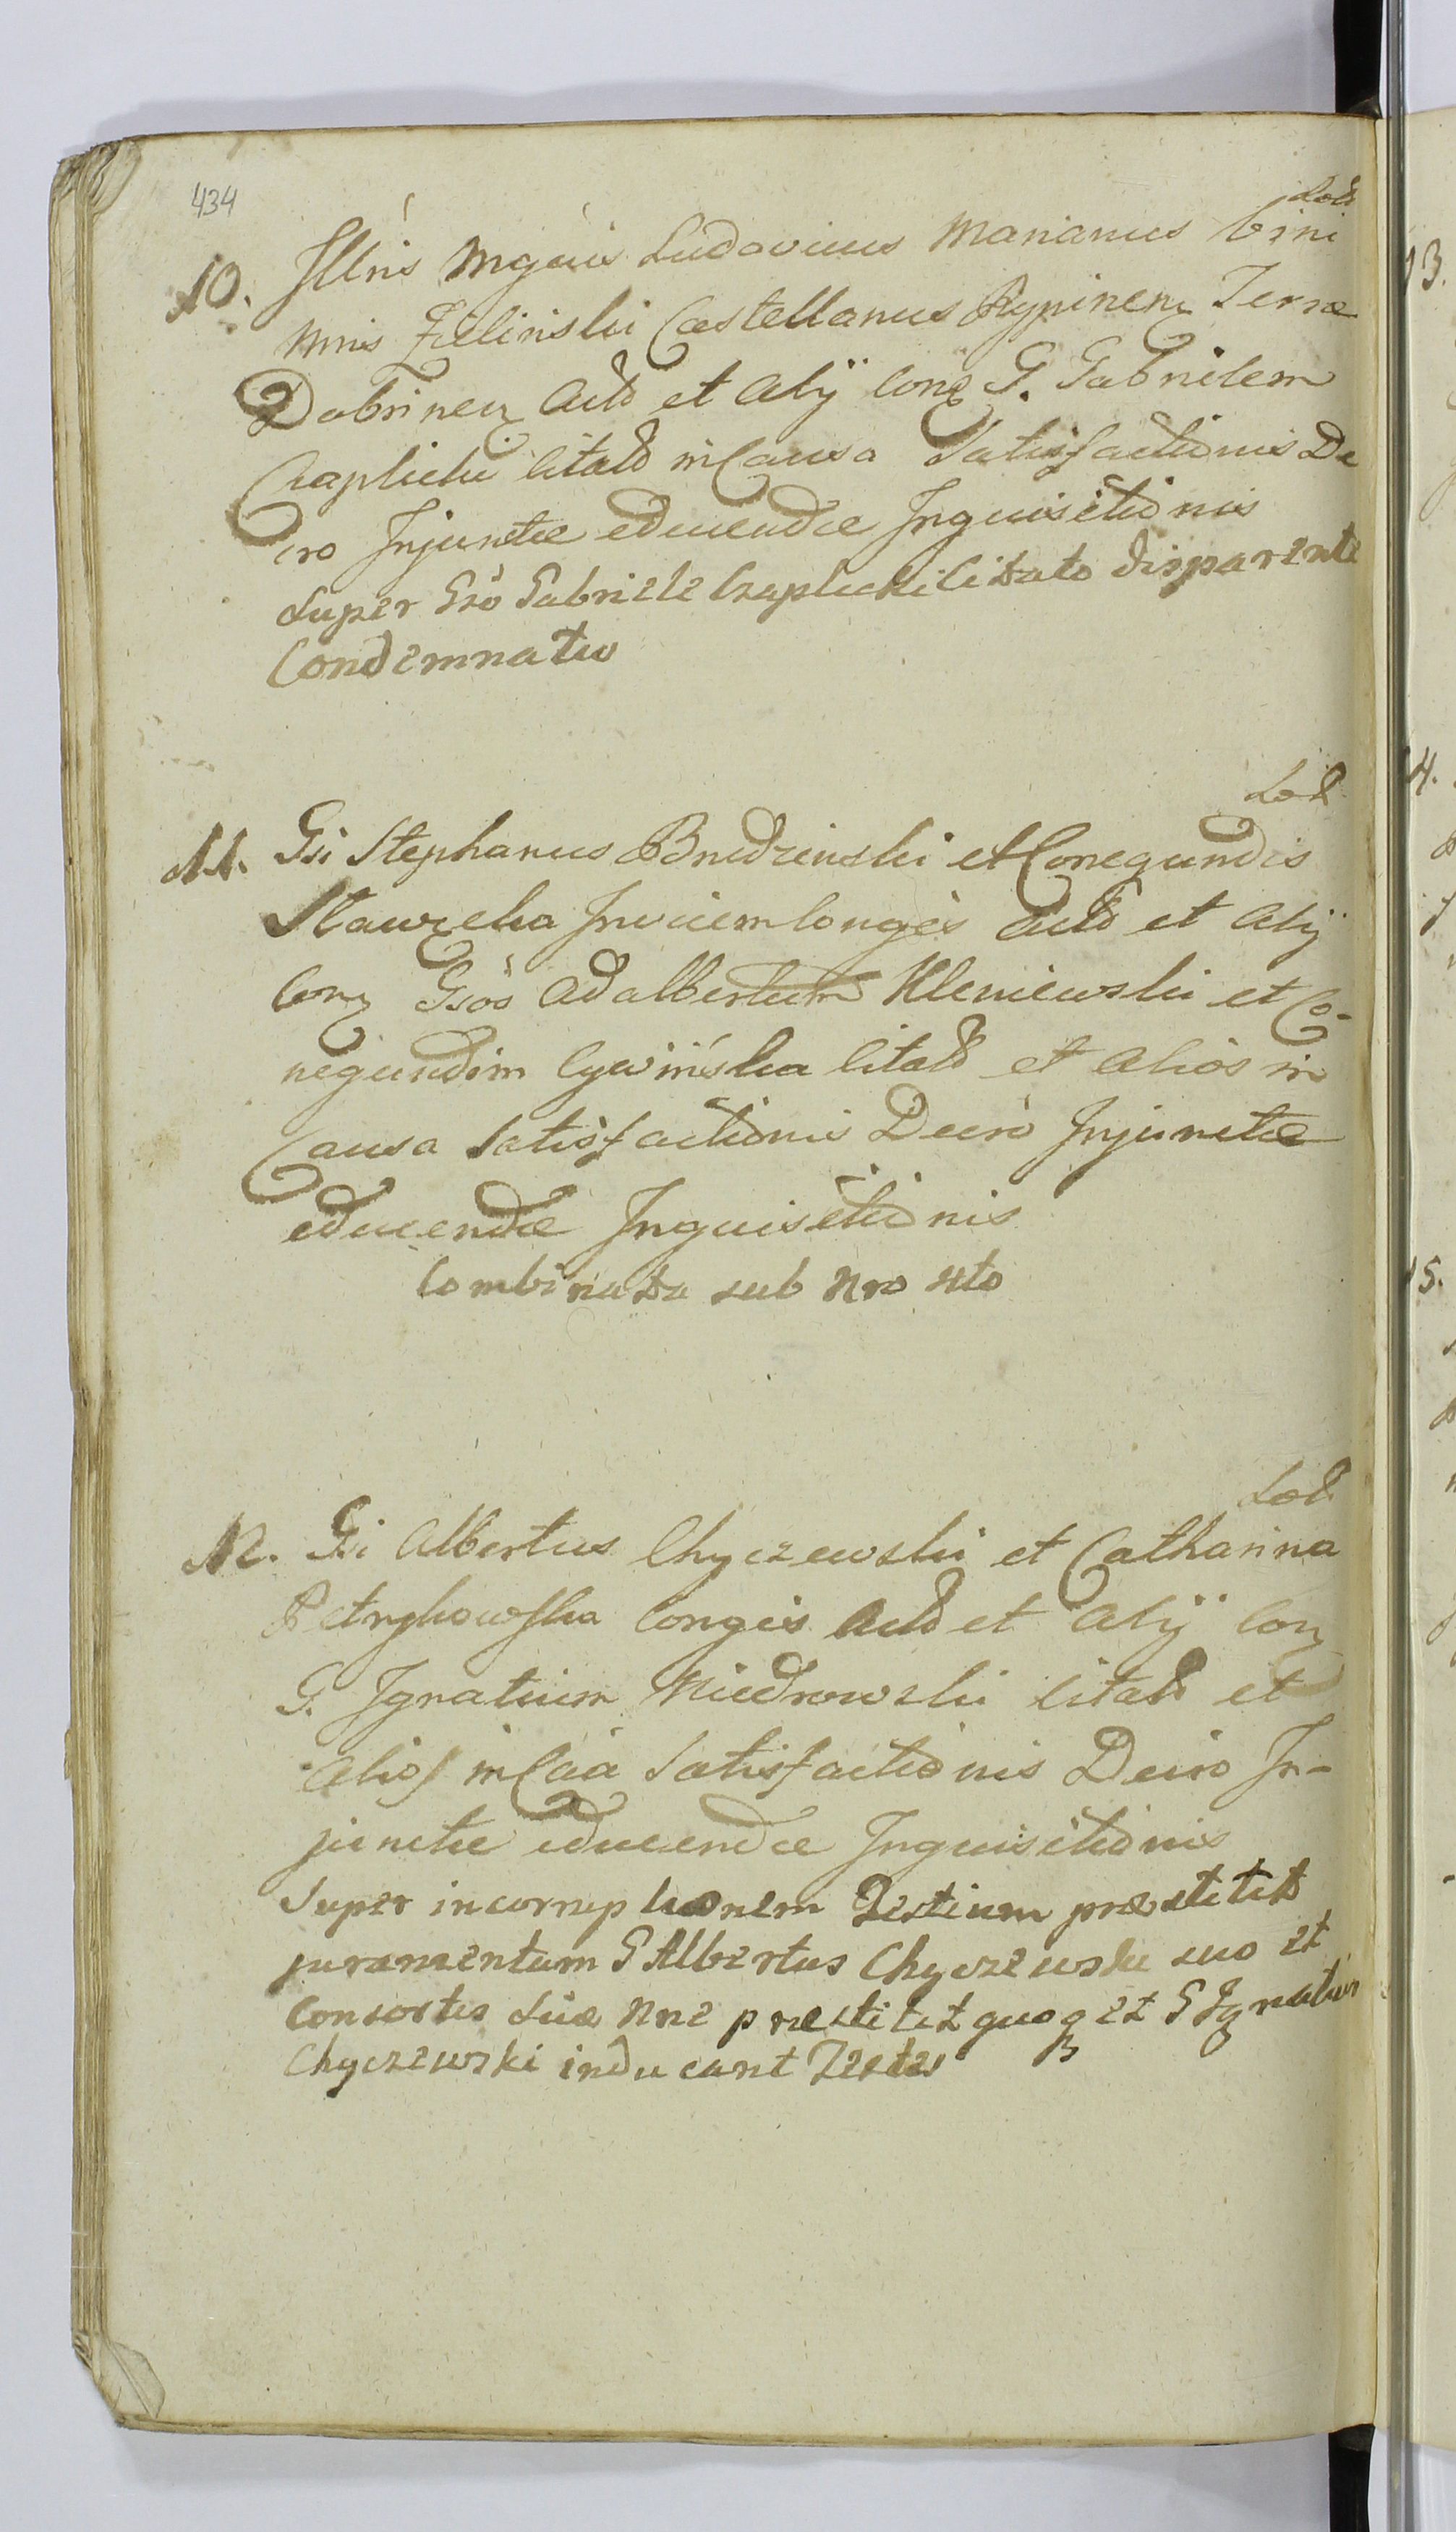 434
Lod
10. Jllris Mgcus Ludovicus Marianus bini
Mnis Zielinski Castellanus Rypinen Terræ
Dobrinen Actd et Alÿ Con G. Gabrielem
Czaplicki Citatd in Causa Satisfactionis De
cro Injunctæ educendæ Inquisitionis
Super Gsô Gabriele Czaplicki Citato disparente
Condemnatio
Lod
11. Gsi Stephanus Budzinski et Conegundis
Stawzcka Invicem Congês Actd et Alÿ
Con Gsôs Adalbertum Kleniewski et Co-
negundim Cywińska Citatd et Aliôs in
Causa Satisfactionis Decrô Injunctæ
educendæ Inquisitionis
Combinata sub Nro 4to
Lod
12. Gsi Albertus Chyczewski et Catharina
Petrykowska Congês Actd et Alÿ Con
G. Ignatium Niedrowski Citatd et
Alios in Caâ Satisfactionis Decro In-
junctæ educendæ Inquisitionis
Super incorruptionem Testium præstitit
juramentum G Albertus Chyczewski suo et
Consortis Suæ Nne præstitit quoq et G Ignatius
Chyczewski inducant Testes
13.
14.
15.